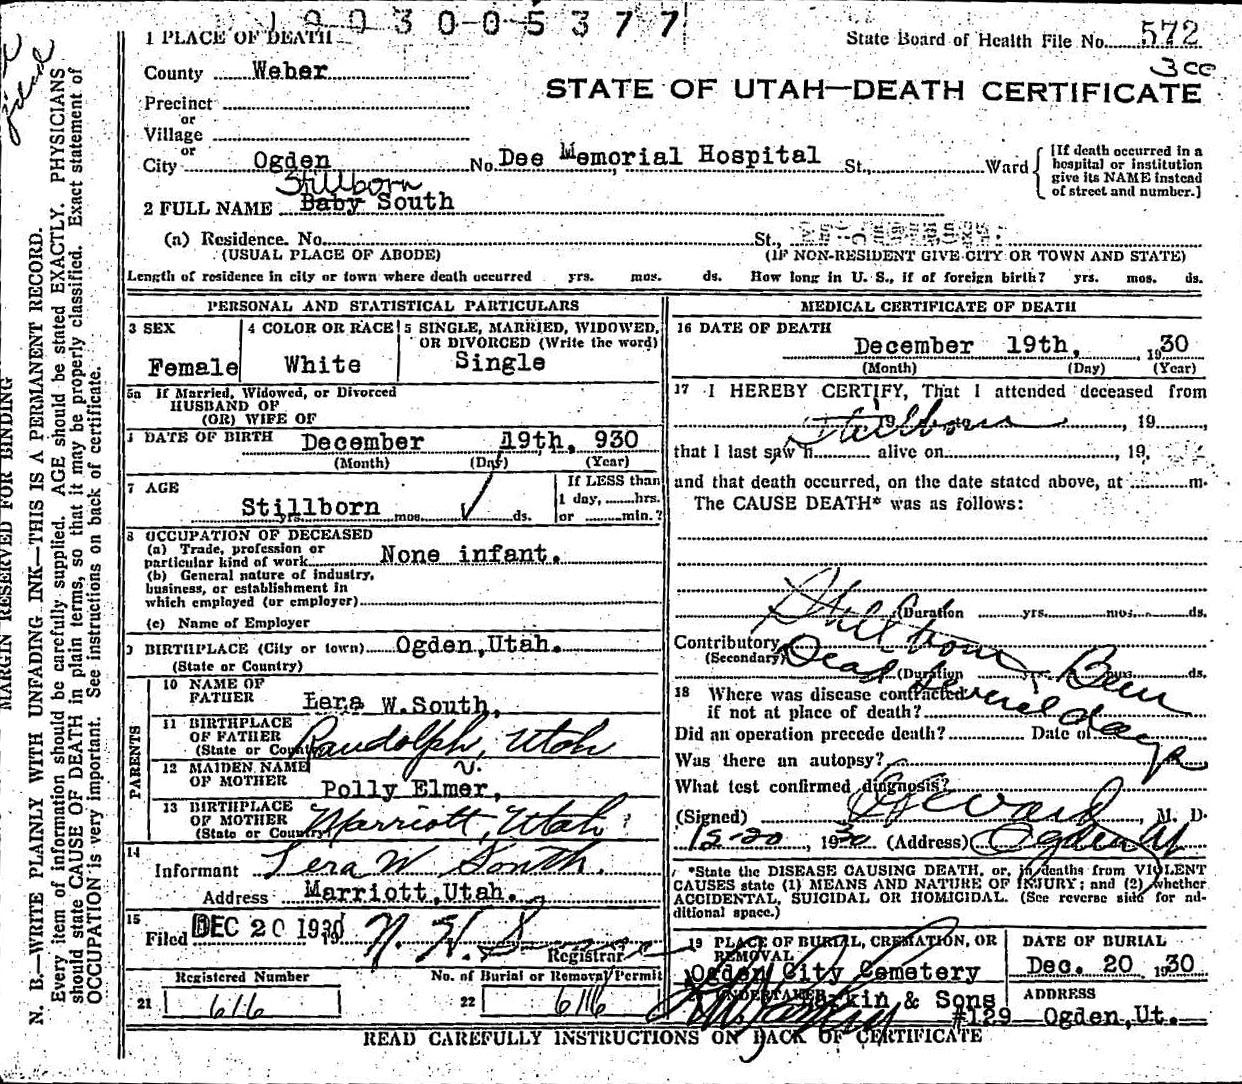 1930005377
1 PLACE OF DEATH
State Board of Health File No. 572
County Weber
STATE OF UTAH—DEATH CERTIFICATE
Precinct
or
Village
or
City Ogden No. Dee Memorial Hospital St., Ward
[If death occurred in a hospital or institution give its NAME instead of street and number.]
Stillborn
2 FULL NAME Baby South
(a) Residence. No. St.,
(USUAL PLACE OF ABODE) (IF NON-RESIDENT GIVE CITY OR TOWN AND STATE)
Length of residence in city or town where death occurred yrs. mos. ds. How long in U. S., if of foreign birth? yrs. mos. ds.
PERSONAL AND STATISTICAL PARTICULARS
3 SEX
Female
4 COLOR OR RACE
White
5 SINGLE, MARRIED, WIDOWED,
OR DIVORCED (Write the word)
Single
5a If Married, Widowed, or Divorced
HUSBAND OF
(OR) WIFE OF
DATE OF BIRTH December 19th, 930
(Month) (Day) (Year)
7 AGE
Stillborn
yrs. mos. ds.
If LESS than
1 day, hrs.
or min.?
8 OCCUPATION OF DECEASED
(a) Trade, profession or
particular kind of work None infant.
(b) General nature of industry,
business, or establishment in
which employed (or employer)
(c) Name of Employer
9 BIRTHPLACE (City or town) Ogden,Utah.
(State or Country)
PARENTS
10 NAME OF
FATHER Lera W.South,
11 BIRTHPLACE
OF FATHER
(State or Country) Randolph, Utah
12 MAIDEN NAME
OF MOTHER Polly Elmer,
13 BIRTHPLACE
OF MOTHER
(State or Country) Marriott, Utah
14
Informant Lera W South.
Address Marriott,Utah.
15
Filed DEC 20 1930
Registrar
Registered Number
21 616
No. of Burial or Removal Permit
22 616
MEDICAL CERTIFICATE OF DEATH
16 DATE OF DEATH
December 19th, 1930
(Month) (Day) (Year)
17 I HEREBY CERTIFY, That I attended deceased from
Stillborn 19
that I last saw h alive on , 19
and that death occurred, on the date stated above, at m.
The CAUSE DEATH* was as follows:
Stillborn Been
(Duration yrs. mos. ds.
Contributory
(Secondary)
Dead several days
(Duration yrs. mos. ds.
18 Where was disease contracted
if not at place of death?
Did an operation precede death? Date of
Was there an autopsy?
What test confirmed diagnosis?
(Signed) , M. D.
12-20, 1930 (Address) Ogden U
*State the DISEASE CAUSING DEATH, or, in deaths from VIOLENT
CAUSES state (1) MEANS AND NATURE OF INJURY; and (2) whether
ACCIDENTAL, SUICIDAL OR HOMICIDAL. (See reverse side for ad-
ditional space.)
19 PLACE OF BURIAL, CREMATION, OR
REMOVAL
Ogden City Cemetery
DATE OF BURIAL
Dec. 20 1930
UNDERTAKER Larkin & Sons
#129
ADDRESS
Ogden,Ut.
READ CAREFULLY INSTRUCTIONS ON BACK OF CERTIFICATE
MARGIN RESERVED FOR BINDING
N. B.—WRITE PLAINLY WITH UNFADING INK—THIS IS A PERMANENT RECORD.
Every item of information should be carefully supplied. AGE should be stated EXACTLY. PHYSICIANS
should state CAUSE OF DEATH in plain terms, so that it may be properly classified. Exact statement of
OCCUPATION is very important. See instructions on back of certificate.